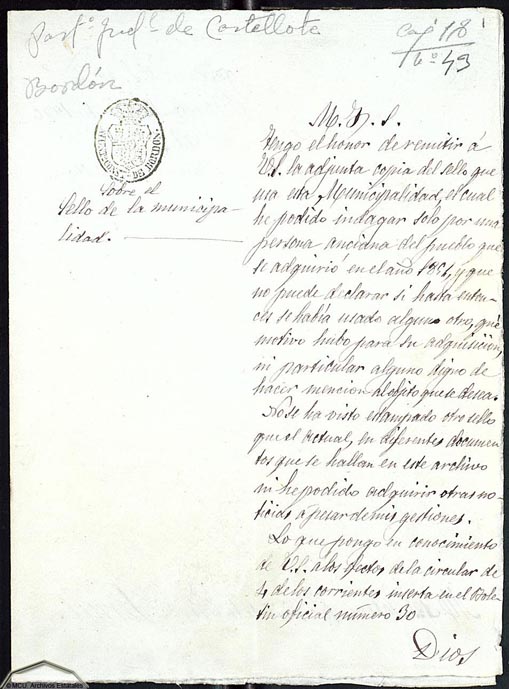 Part.º Jud.l de Castellote
Caj 118
n.º 43
Bordón
DE BORDON.
Sobre el
Sello de la municipa-
lidad.
M. Y. S.
Tengo el honor de remitir á
V.S. la adjunta copia del sello que
usa esta Municipalidad, el cual
he podido indagar solo por una
persona anciana del pueblo que
se adquirió en el año, y que
no puede declarar si hasta enton-
ces se había usado alguno otro, qué
motivo hubo para su adquisicion,
ni particular alguno digno de
hacer mencion al objeto que se desea.
No se ha visto estampado otro sello
que el actual, en diferentes documen-
tos que se hallan en este archivo
ni he podido adquirir otras no-
ticias a pesar de mis gestiones.
Lo que pongo en conocimiento
de V.S. a los efectos de la circular de
4 de los corrientes inserta en el Bole-
tin oficial número 30
Dios
© MCU. Archivos Estatales